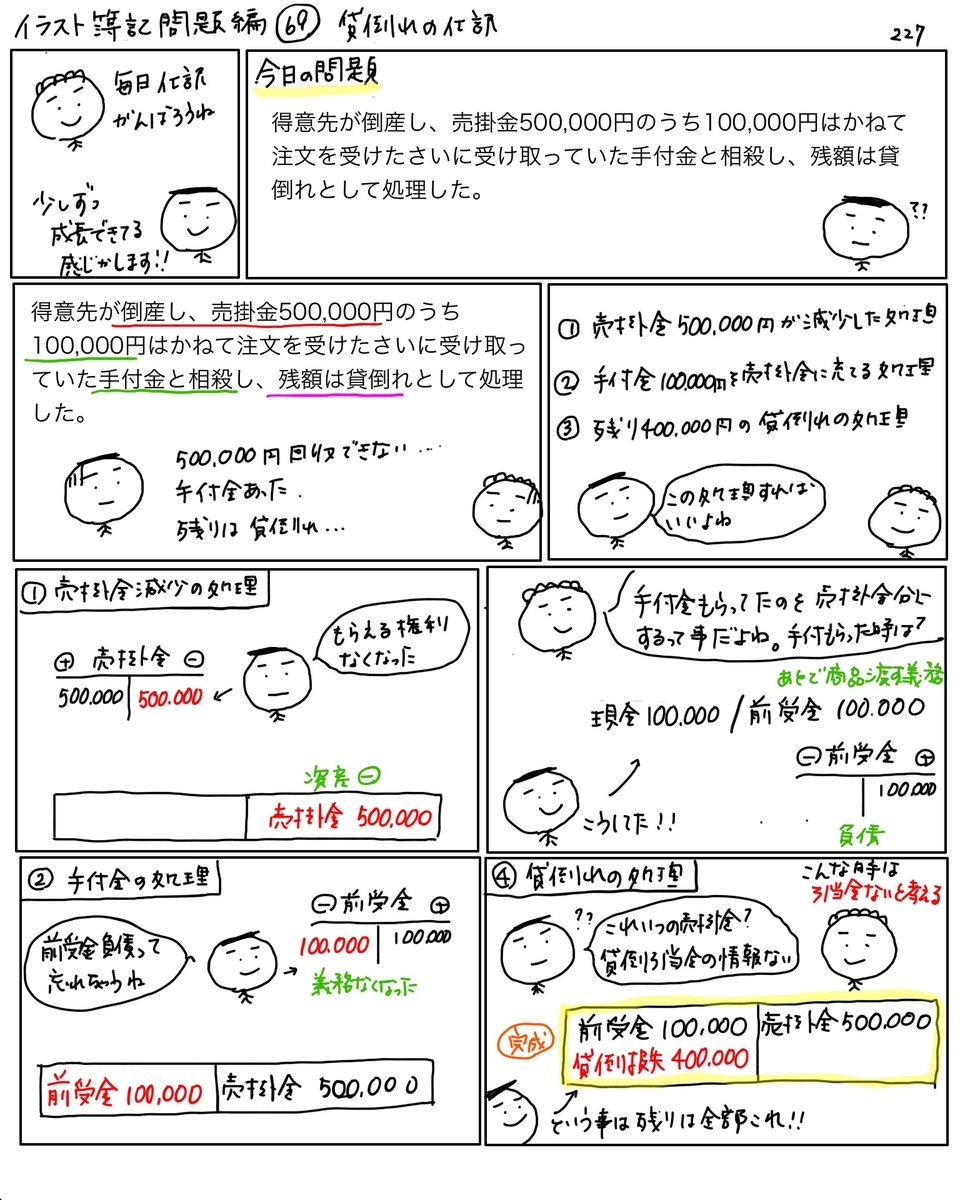 イラスト簿記問題編 69 貸倒れの仕訳
227
毎日仕訳
がんばろうね
少しずつ
成長できてる
感じがします!!
今日の問題
得意先が倒産し、売掛金500,000円のうち100,000円はかねて
注文を受けたさいに受け取っていた手付金と相殺し、残額は貸
倒れとして処理した。
??
得意先が倒産し、売掛金500,000円のうち
100,000円はかねて注文を受けたさいに受け取っ
ていた手付金と相殺し、残額は貸倒れとして処理
した。
500,000円回収できない…
手付金あった.
残りは貸倒れ…
① 売掛金500,000円が減少した処理
② 手付金100,000円を売掛金に充てる処理
③ 残り400,000円の貸倒れの処理
この処理すれば
いいよね
① 売掛金減少の処理
もらえる権利
なくなった
⊕ 売掛金 ⊖
500.000 500.000
資産⊖
売掛金 500,000
手付金もらってたのを売掛金分に
するって事だよね。手付もらった時は?
あとで商品渡す義務
現金100.000 / 前受金 100.000
⊖前受金 ⊕
100.000
負債
こうしてた!!
② 手付金の処理
⊖前受金 ⊕
100.000 100.000
義務なくなった
前受金負債って
忘れちゃうね
前受金100,000 売掛金 500,000
④ 貸倒れの処理
こんな時は
引当金ないと考える
??
これいつの売掛金?
貸倒引当金の情報ない
完成
前受金100,000 売掛金500,000
貸倒損失 400,000
という事は残りは全部これ!!